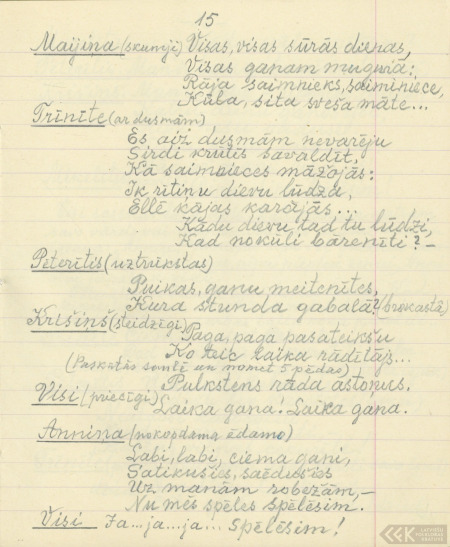 15
Maijiņa (skumji) Visas, visas sūrās dienas,
Visas ganam mugurā:
Rāja saimnieks, saiminiece,
Kūla, sita sveša māte...
Trīnīte (ar dusmām)
Es aiz dusmām nevarēju
Sirdi krūtīs savaldīt,
Kā saimnieces māžojās:
Ik rītiņu dievu lūdza,
Ellē kājas karājās...
Kādu dievu tad tu lūdzi,
Kad nokūli bārenīti? –
Pēterītis (uztrūkstas)
Puikas, ganu meitenītes,
Kura stunda gabalā? (brokastā)
Krišiņš (steidzīgi) Paga, paga pasateikšu
Ko teic laika rādītājs...
(Paskatās saulē un nomet 5 pēdas)
Pulkstens rāda astoņus.
Visi (priecīgi) Laika gana! Laika gana.
Anniņa (nokopdama ēdamo)
Labi, labi, ciema gani,
Satikušies, saēdušies
Uz manām robežām, –
Nu mēs spēles spēlēsim.
Visi Ja... ja... ja... Spēlēsim!
LFK LATVIEŠU FOLKLORAS KRĀTUVE